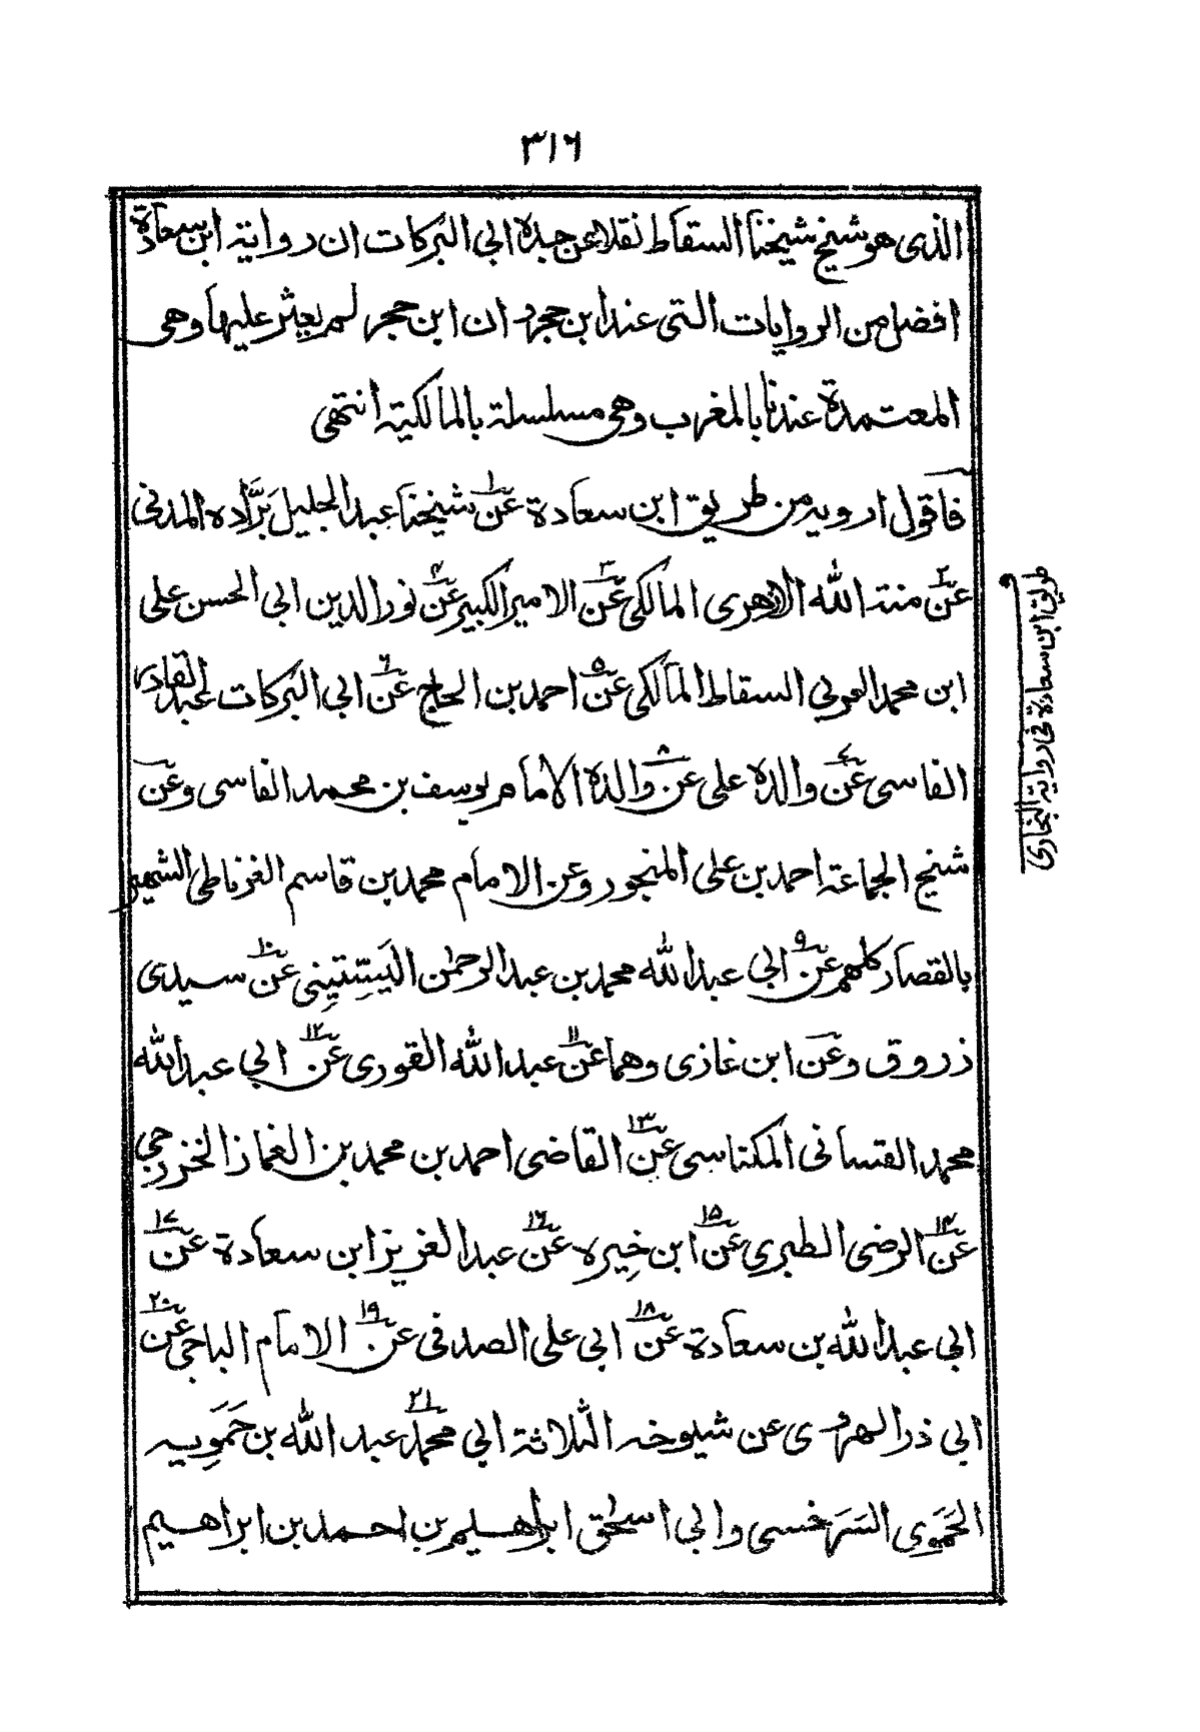 ٣١٦
الذى هو شيخ شيخنا السقاط نقلا عن جده ابي البركات ان رواية ابن سعادة
افضل من الروايات التى عند ابن حجر و ان ابن حجر لم يعثر عليها وهى
المعتمدة عندنا بالمغرب وهى مسلسلة بالمالكية انتهى
فاقول ارويه من طريق ابن سعادة عن١ شيخنا عبد الجليل بَرَّاده المدنى
عن٢ منة الله الازهرى المالكى عن٣ الامير الكبير عن٤ نور الدين ابي الحسن على
ابن محمد العربي السقاط المالكى عن٥ احمد بن الحاج عن٦ ابي البركات عبد القادر
الفاسى عن٧ والده على عن٨ والده الامام يوسف بن محمد الفاسى وعن
شيخ الجماعة احمد بن على المنجور وعن الامام محمد بن قاسم الغرناطى الشهير
بالقصار كلهم عن٩ ابي عبد الله محمد بن عبد الرحمن اليَسِّتِيِنِى عن١٠ سيدى
زروق وعن ابن غازى وهما عن١١ عبد الله القورى عن١٢ ابي عبد الله
محمد القسانى المكناسى عن١٣ القاضى احمد بن محمد بن الغماز الخزرجي
عن١٤ الرضى الطبري عن١٥ ابن خِيره عن١٦ عبد العزيز ابن سعادة عن١٧
ابي عبد الله بن سعادة عن١٨ ابي على الصدفى عن١٩ الامام الباجى عن٢٠
ابي ذر الهروى عن شيوخه الثلاثة ابي محمد٢١ عبد الله بن حَمَوِيه
الحَمَوِى السَرَخسى وابي اسحٰق ابراهيم بن احمد بن ابراهيم
طريق ابن سعادة فى رواية البخارى